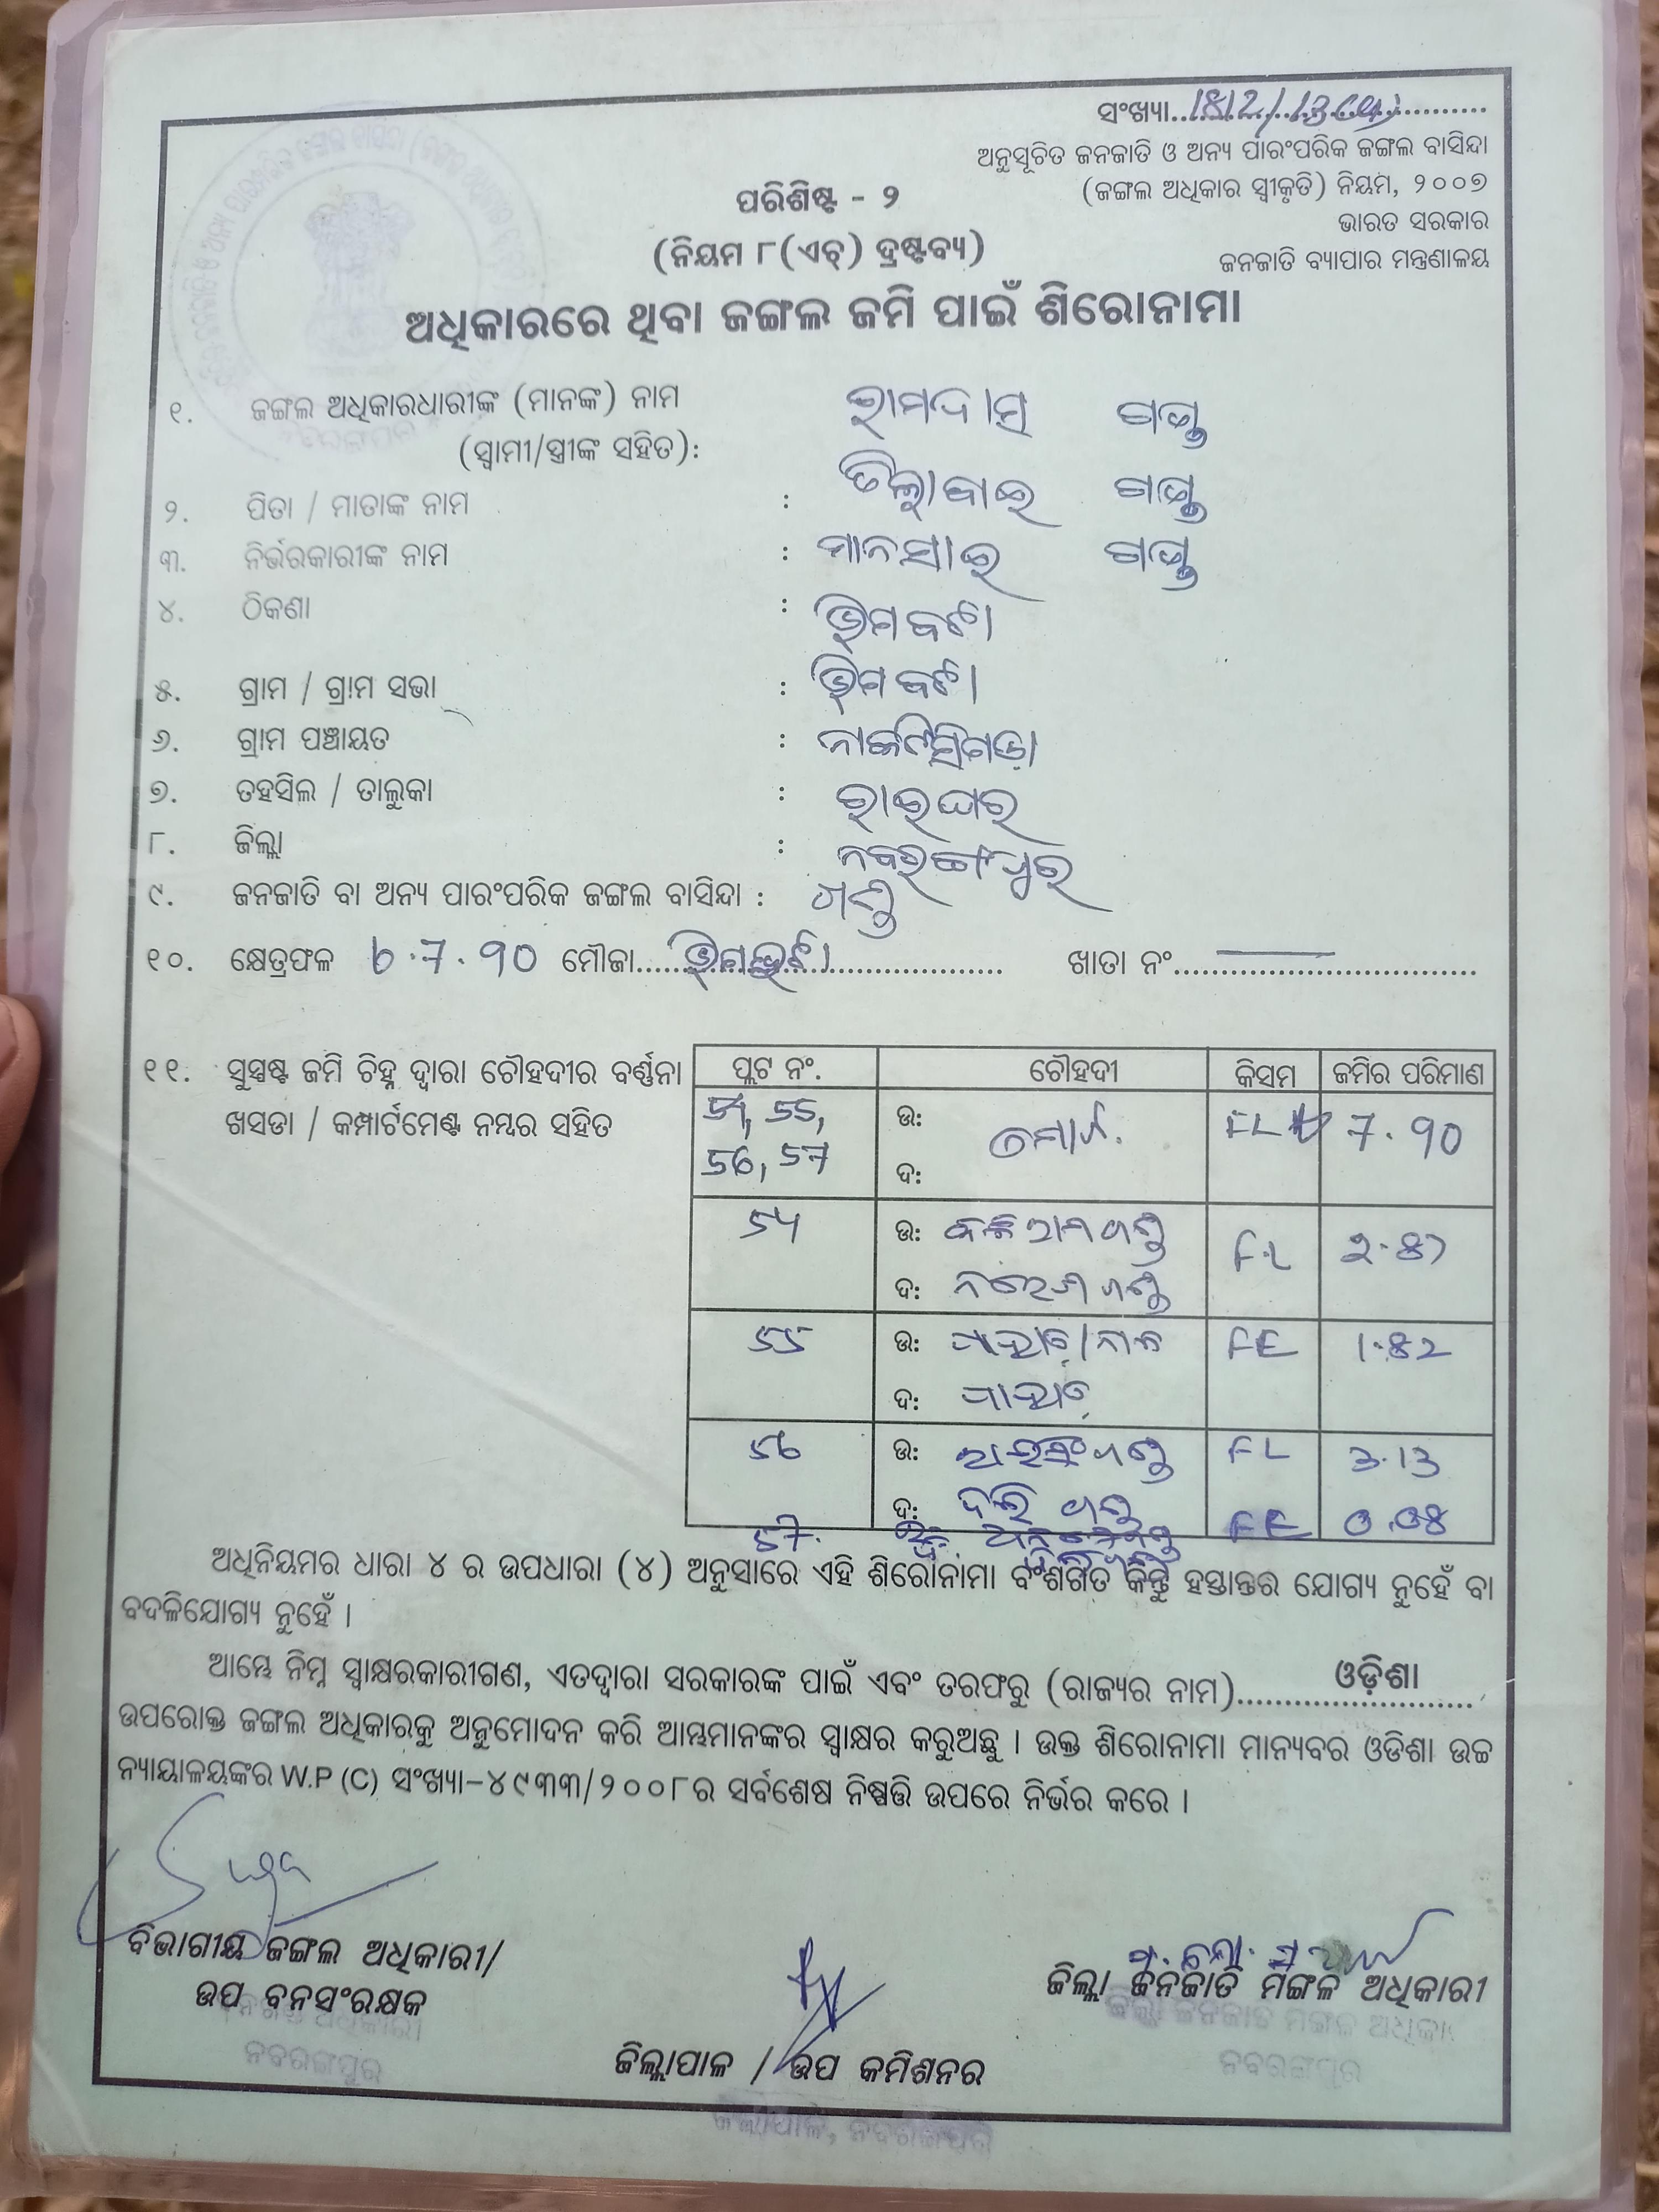 ସଂଖ୍ୟା
ଅନୁସୂଚିତ ଜନଜାତି ଓ ଅନ୍ୟ ପାରଂପରିକ ଜଙ୍ଗଲ ବାସିନ୍ଦା
(ଜଙ୍ଗଲ ଅଧିକାର ସ୍ୱୀକୃତି) ନିୟମ, ୨୦୦୭
ଭାରତ ସରକାର
ଜନଜାତି ବ୍ୟାପାର ମନ୍ତ୍ରଣାଳୟ
ପରିଶିଷ୍ଟ - ୨
(ନିୟମ ୮(ଏଚ୍) ଦ୍ରଷ୍ଟବ୍ୟ)
ଅଧିକାରରେ ଥିବା ଜଙ୍ଗଲ ଜମି ପାଇଁ ଶିରୋନାମା
୧. ଜଙ୍ଗଲ ଅଧିକାରଧାରୀଙ୍କ (ମାନଙ୍କ) ନାମ ରାମଦାସ
(ସ୍ୱାମୀ/ସ୍ତ୍ରୀଙ୍କ ସହିତ):
୨. ପିତା / ମାତାଙ୍କ ନାମ :
୩. ନିର୍ଭରକାରୀଙ୍କ ନାମ : ମାନସାଇ
୪. ଠିକଣା :
୫. ଗ୍ରାମ / ଗ୍ରାମ ସଭା :
୬. ଗ୍ରାମ ପଞ୍ଚାୟତ :
୭. ତହସିଲ / ତାଲୁକା : ରାଇଘର
୮. ଜିଲ୍ଲା : ନବରଙ୍ଗପୁର
୯. ଜନଜାତି ବା ଅନ୍ୟ ପାରଂପରିକ ଜଙ୍ଗଲ ବାସିନ୍ଦା : ଗଣ୍ଡ
୧୦. କ୍ଷେତ୍ରଫଳ 7.90 ମୌଜା ଖାତା ନଂ
୧୧. ସୁସ୍ପଷ୍ଟ ଜମି ଚିହ୍ନ ଦ୍ୱାରା ଚୌହଦୀର ବର୍ଣ୍ଣନା
ଖସଡା / କମ୍ପାର୍ଟମେଣ୍ଟ ନମ୍ବର ସହିତ
ପ୍ଲଟ ନଂ. ଚୌହଦୀ କିସମ ଜମିର ପରିମାଣ
54, 55, ଉ: FL 7.90
56, 57 ଦ:
54 ଉ: F.L 2.87
ଦ: ନରେଶ ଗଣ୍ଡ
55 ଉ: FL 1.82
ଦ: ପାହାଡ଼
56 ଉ: ରାଇସିଂ ଗଣ୍ଡ FL 3.13
ଦ: ଗଣ୍ଡ
57. FL 0.08
ଅଧିନିୟମର ଧାରା ୪ ର ଉପଧାରା (୪) ଅନୁସାରେ ଏହି ଶିରୋନାମା ବଂଶଗତ କିନ୍ତୁ ହସ୍ତାନ୍ତର ଯୋଗ୍ୟ ନୁହେଁ ବା
ବଦଳିଯୋଗ୍ୟ ନୁହେଁ ।
ଆମ୍ଭେ ନିମ୍ନ ସ୍ୱାକ୍ଷରକାରୀଗଣ, ଏତଦ୍ଦ୍ୱାରା ସରକାରଙ୍କ ପାଇଁ ଏବଂ ତରଫରୁ (ରାଜ୍ୟର ନାମ) ଓଡ଼ିଶା
ଉପରୋକ୍ତ ଜଙ୍ଗଲ ଅଧିକାରକୁ ଅନୁମୋଦନ କରି ଆମ୍ଭମାନଙ୍କର ସ୍ୱାକ୍ଷର କରୁଅଛୁ । ଉକ୍ତ ଶିରୋନାମା ମାନ୍ୟବର ଓଡିଶା ଉଚ୍ଚ
ନ୍ୟାୟାଳୟଙ୍କର W.P (C) ସଂଖ୍ୟା-୪୯୩୩/୨୦୦୮ର ସର୍ବଶେଷ ନିଷ୍ପତ୍ତି ଉପରେ ନିର୍ଭର କରେ ।
ବିଭାଗୀୟ ଜଙ୍ଗଲ ଅଧିକାରୀ/
ଉପ ବନସଂରକ୍ଷକ
ନବରଙ୍ଗପୁର
ଜିଲ୍ଲାପାଳ / ଉପ କମିଶନର
ଜିଲ୍ଲାପାଳ, ନବରଙ୍ଗପୁର
ଜିଲ୍ଲା ଜନଜାତି ମଙ୍ଗଳ ଅଧିକାରୀ
ଜିଲ୍ଲା ଜନଜାତି ମଙ୍ଗଳ ଅଧିକା
ନବରଙ୍ଗପୁର